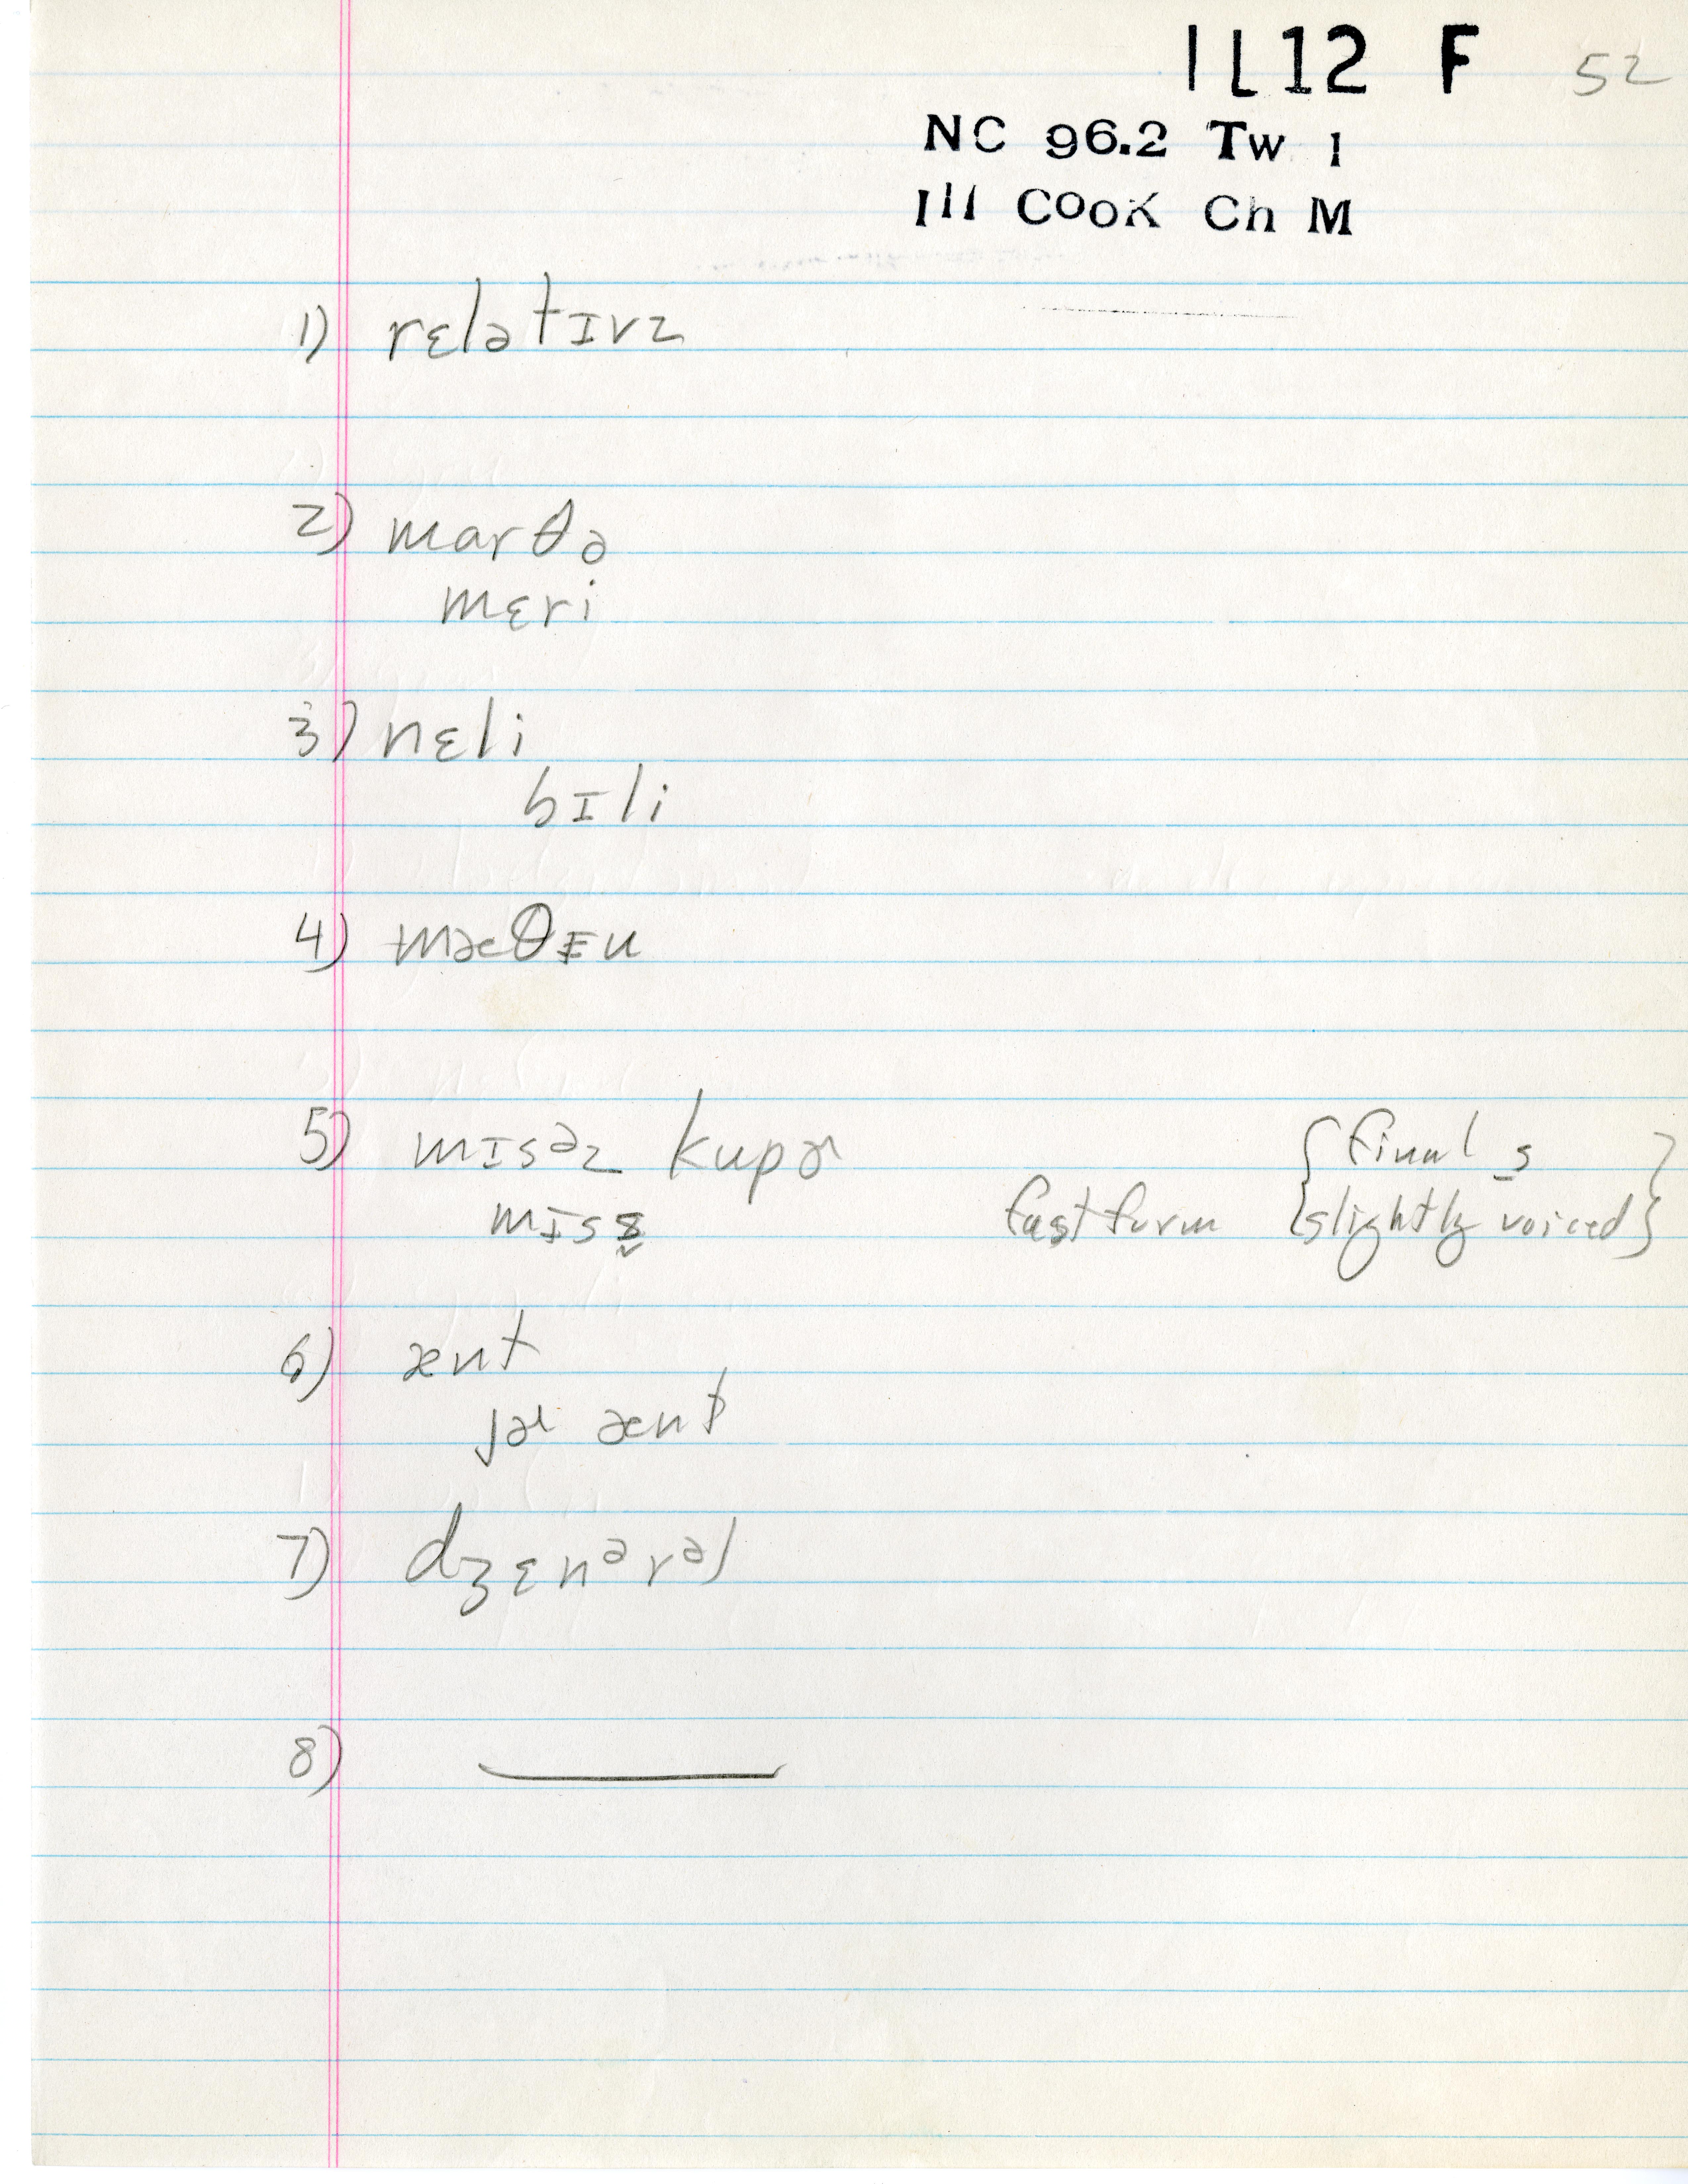 IL12 F 52
NC 96.2 Tw 1
Ill COOK Ch M
1) rɛlətɪvz
2) marθə
mɛri
3) nɛli
bɪli
4) mæθɪu
5) mɪsəz kupɚ {final s}
mɪss̬ fast form {slightly voiced}
6) ænt
jɚ ænt
7) dʒɛnᵊrᵊl
8) ———